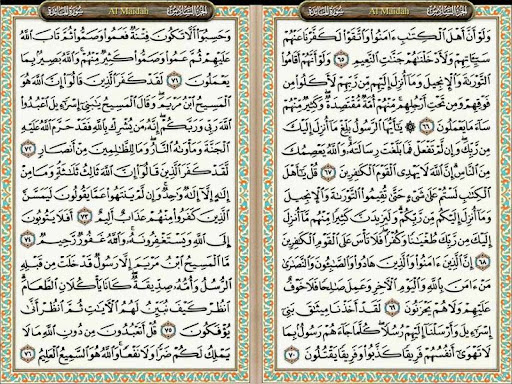 الجزء السادس Al Maidah سورة المائدة
وَلَوْ أَنَّ أَهْلَ ٱلْكِتَٰبِ ءَامَنُوا۟ وَٱتَّقَوْا۟ لَكَفَّرْنَا عَنْهُمْ
سَيِّـَٔاتِهِمْ وَلَأَدْخَلْنَٰهُمْ جَنَّٰتِ ٱلنَّعِيمِ ٦٥ وَلَوْ أَنَّهُمْ أَقَامُوا۟
ٱلتَّوْرَىٰةَ وَٱلْإِنجِيلَ وَمَآ أُنزِلَ إِلَيْهِم مِّن رَّبِّهِمْ لَأَكَلُوا۟ مِن
فَوْقِهِمْ وَمِن تَحْتِ أَرْجُلِهِم مِّنْهُمْ أُمَّةٌ مُّقْتَصِدَةٌ وَكَثِيرٌ مِّنْهُمْ
سَآءَ مَا يَعْمَلُونَ ٦٦ ۞ يَٰٓأَيُّهَا ٱلرَّسُولُ بَلِّغْ مَآ أُنزِلَ إِلَيْكَ
مِن رَّبِّكَ وَإِن لَّمْ تَفْعَلْ فَمَا بَلَّغْتَ رِسَالَتَهُۥ وَٱللَّهُ يَعْصِمُكَ
مِنَ ٱلنَّاسِ إِنَّ ٱللَّهَ لَا يَهْدِى ٱلْقَوْمَ ٱلْكَٰفِرِينَ ٦٧ قُلْ يَٰٓأَهْلَ
ٱلْكِتَٰبِ لَسْتُمْ عَلَىٰ شَىْءٍ حَتَّىٰ تُقِيمُوا۟ ٱلتَّوْرَىٰةَ وَٱلْإِنجِيلَ
وَمَآ أُنزِلَ إِلَيْكُم مِّن رَّبِّكُمْ وَلَيَزِيدَنَّ كَثِيرًا مِّنْهُم مَّآ أُنزِلَ
إِلَيْكَ مِن رَّبِّكَ طُغْيَٰنًا وَكُفْرًا فَلَا تَأْسَ عَلَى ٱلْقَوْمِ ٱلْكَٰفِرِينَ
٦٨ إِنَّ ٱلَّذِينَ ءَامَنُوا۟ وَٱلَّذِينَ هَادُوا۟ وَٱلصَّٰبِـُٔونَ وَٱلنَّصَٰرَىٰ
مَنْ ءَامَنَ بِٱللَّهِ وَٱلْيَوْمِ ٱلْـَٔاخِرِ وَعَمِلَ صَٰلِحًا فَلَا خَوْفٌ
عَلَيْهِمْ وَلَا هُمْ يَحْزَنُونَ ٦٩ لَقَدْ أَخَذْنَا مِيثَٰقَ بَنِىٓ
إِسْرَٰٓءِيلَ وَأَرْسَلْنَآ إِلَيْهِمْ رُسُلًا كُلَّمَا جَآءَهُمْ رَسُولٌۢ بِمَا
لَا تَهْوَىٰٓ أَنفُسُهُمْ فَرِيقًا كَذَّبُوا۟ وَفَرِيقًا يَقْتُلُونَ ٧٠
الجزء السادس Al Maidah سورة المائدة
وَحَسِبُوٓا۟ أَلَّا تَكُونَ فِتْنَةٌ فَعَمُوا۟ وَصَمُّوا۟ ثُمَّ تَابَ ٱللَّهُ
عَلَيْهِمْ ثُمَّ عَمُوا۟ وَصَمُّوا۟ كَثِيرٌ مِّنْهُمْ وَٱللَّهُ بَصِيرٌۢ بِمَا
يَعْمَلُونَ ٧١ لَقَدْ كَفَرَ ٱلَّذِينَ قَالُوٓا۟ إِنَّ ٱللَّهَ هُوَ
ٱلْمَسِيحُ ٱبْنُ مَرْيَمَ وَقَالَ ٱلْمَسِيحُ يَٰبَنِىٓ إِسْرَٰٓءِيلَ ٱعْبُدُوا۟
ٱللَّهَ رَبِّى وَرَبَّكُمْ إِنَّهُۥ مَن يُشْرِكْ بِٱللَّهِ فَقَدْ حَرَّمَ ٱللَّهُ عَلَيْهِ
ٱلْجَنَّةَ وَمَأْوَىٰهُ ٱلنَّارُ وَمَا لِلظَّٰلِمِينَ مِنْ أَنصَارٍ ٧٢
لَّقَدْ كَفَرَ ٱلَّذِينَ قَالُوٓا۟ إِنَّ ٱللَّهَ ثَالِثُ ثَلَٰثَةٍ وَمَا مِنْ
إِلَٰهٍ إِلَّآ إِلَٰهٌ وَٰحِدٌ وَإِن لَّمْ يَنتَهُوا۟ عَمَّا يَقُولُونَ لَيَمَسَّنَّ
ٱلَّذِينَ كَفَرُوا۟ مِنْهُمْ عَذَابٌ أَلِيمٌ ٧٣ أَفَلَا يَتُوبُونَ
إِلَى ٱللَّهِ وَيَسْتَغْفِرُونَهُۥ وَٱللَّهُ غَفُورٌ رَّحِيمٌ ٧٤
مَّا ٱلْمَسِيحُ ٱبْنُ مَرْيَمَ إِلَّا رَسُولٌ قَدْ خَلَتْ مِن قَبْلِهِ
ٱلرُّسُلُ وَأُمُّهُۥ صِدِّيقَةٌ كَانَا يَأْكُلَانِ ٱلطَّعَامَ
ٱنظُرْ كَيْفَ نُبَيِّنُ لَهُمُ ٱلْـَٔايَٰتِ ثُمَّ ٱنظُرْ أَنَّىٰ
يُؤْفَكُونَ ٧٥ قُلْ أَتَعْبُدُونَ مِن دُونِ ٱللَّهِ مَا لَا
يَمْلِكُ لَكُمْ ضَرًّا وَلَا نَفْعًا وَٱللَّهُ هُوَ ٱلسَّمِيعُ ٱلْعَلِيمُ ٧٦